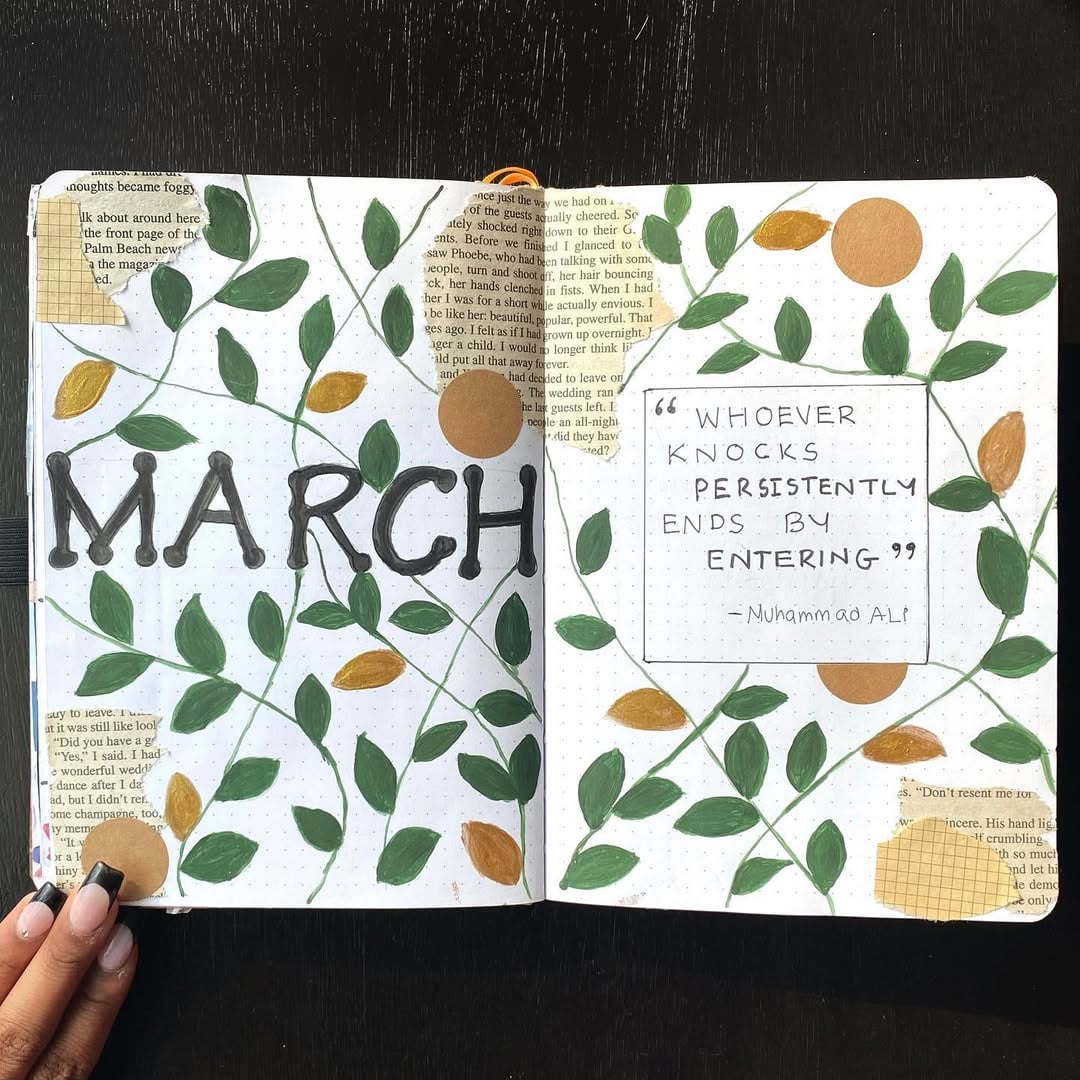 thoughts became foggy
talk about around here
the front page of the
Palm Beach news
the magaz
just the way we had on
of the guests actually cheered. So
shocked right down to their G
Before we finished I glanced to
saw Phoebe, who had been talking with some
people, turn and shoot off, her hair bouncing
her hands clenched in fists. When I had
her I was for a short while actually envious. I
be like her: beautiful, popular, powerful. That
ges ago. I felt as if I had grown up overnight.
a child. I would no longer think
put all that away forever.
and had decided to leave on
The wedding ran
the last guests left. I
people an all-night
did they have
MARCH
to leave. I
it was still like
"Did you have a
"Yes," I said. I had
wonderful
dance after I
but I didn't
some champagne, too,
my
"It
or a
shiny
“ WHOEVER
KNOCKS
PERSISTENTLY
ENDS BY
ENTERING ”
- Muhammad ALI
"Don't resent me for
sincere. His hand
crumbling
with so much
and let
demo
only